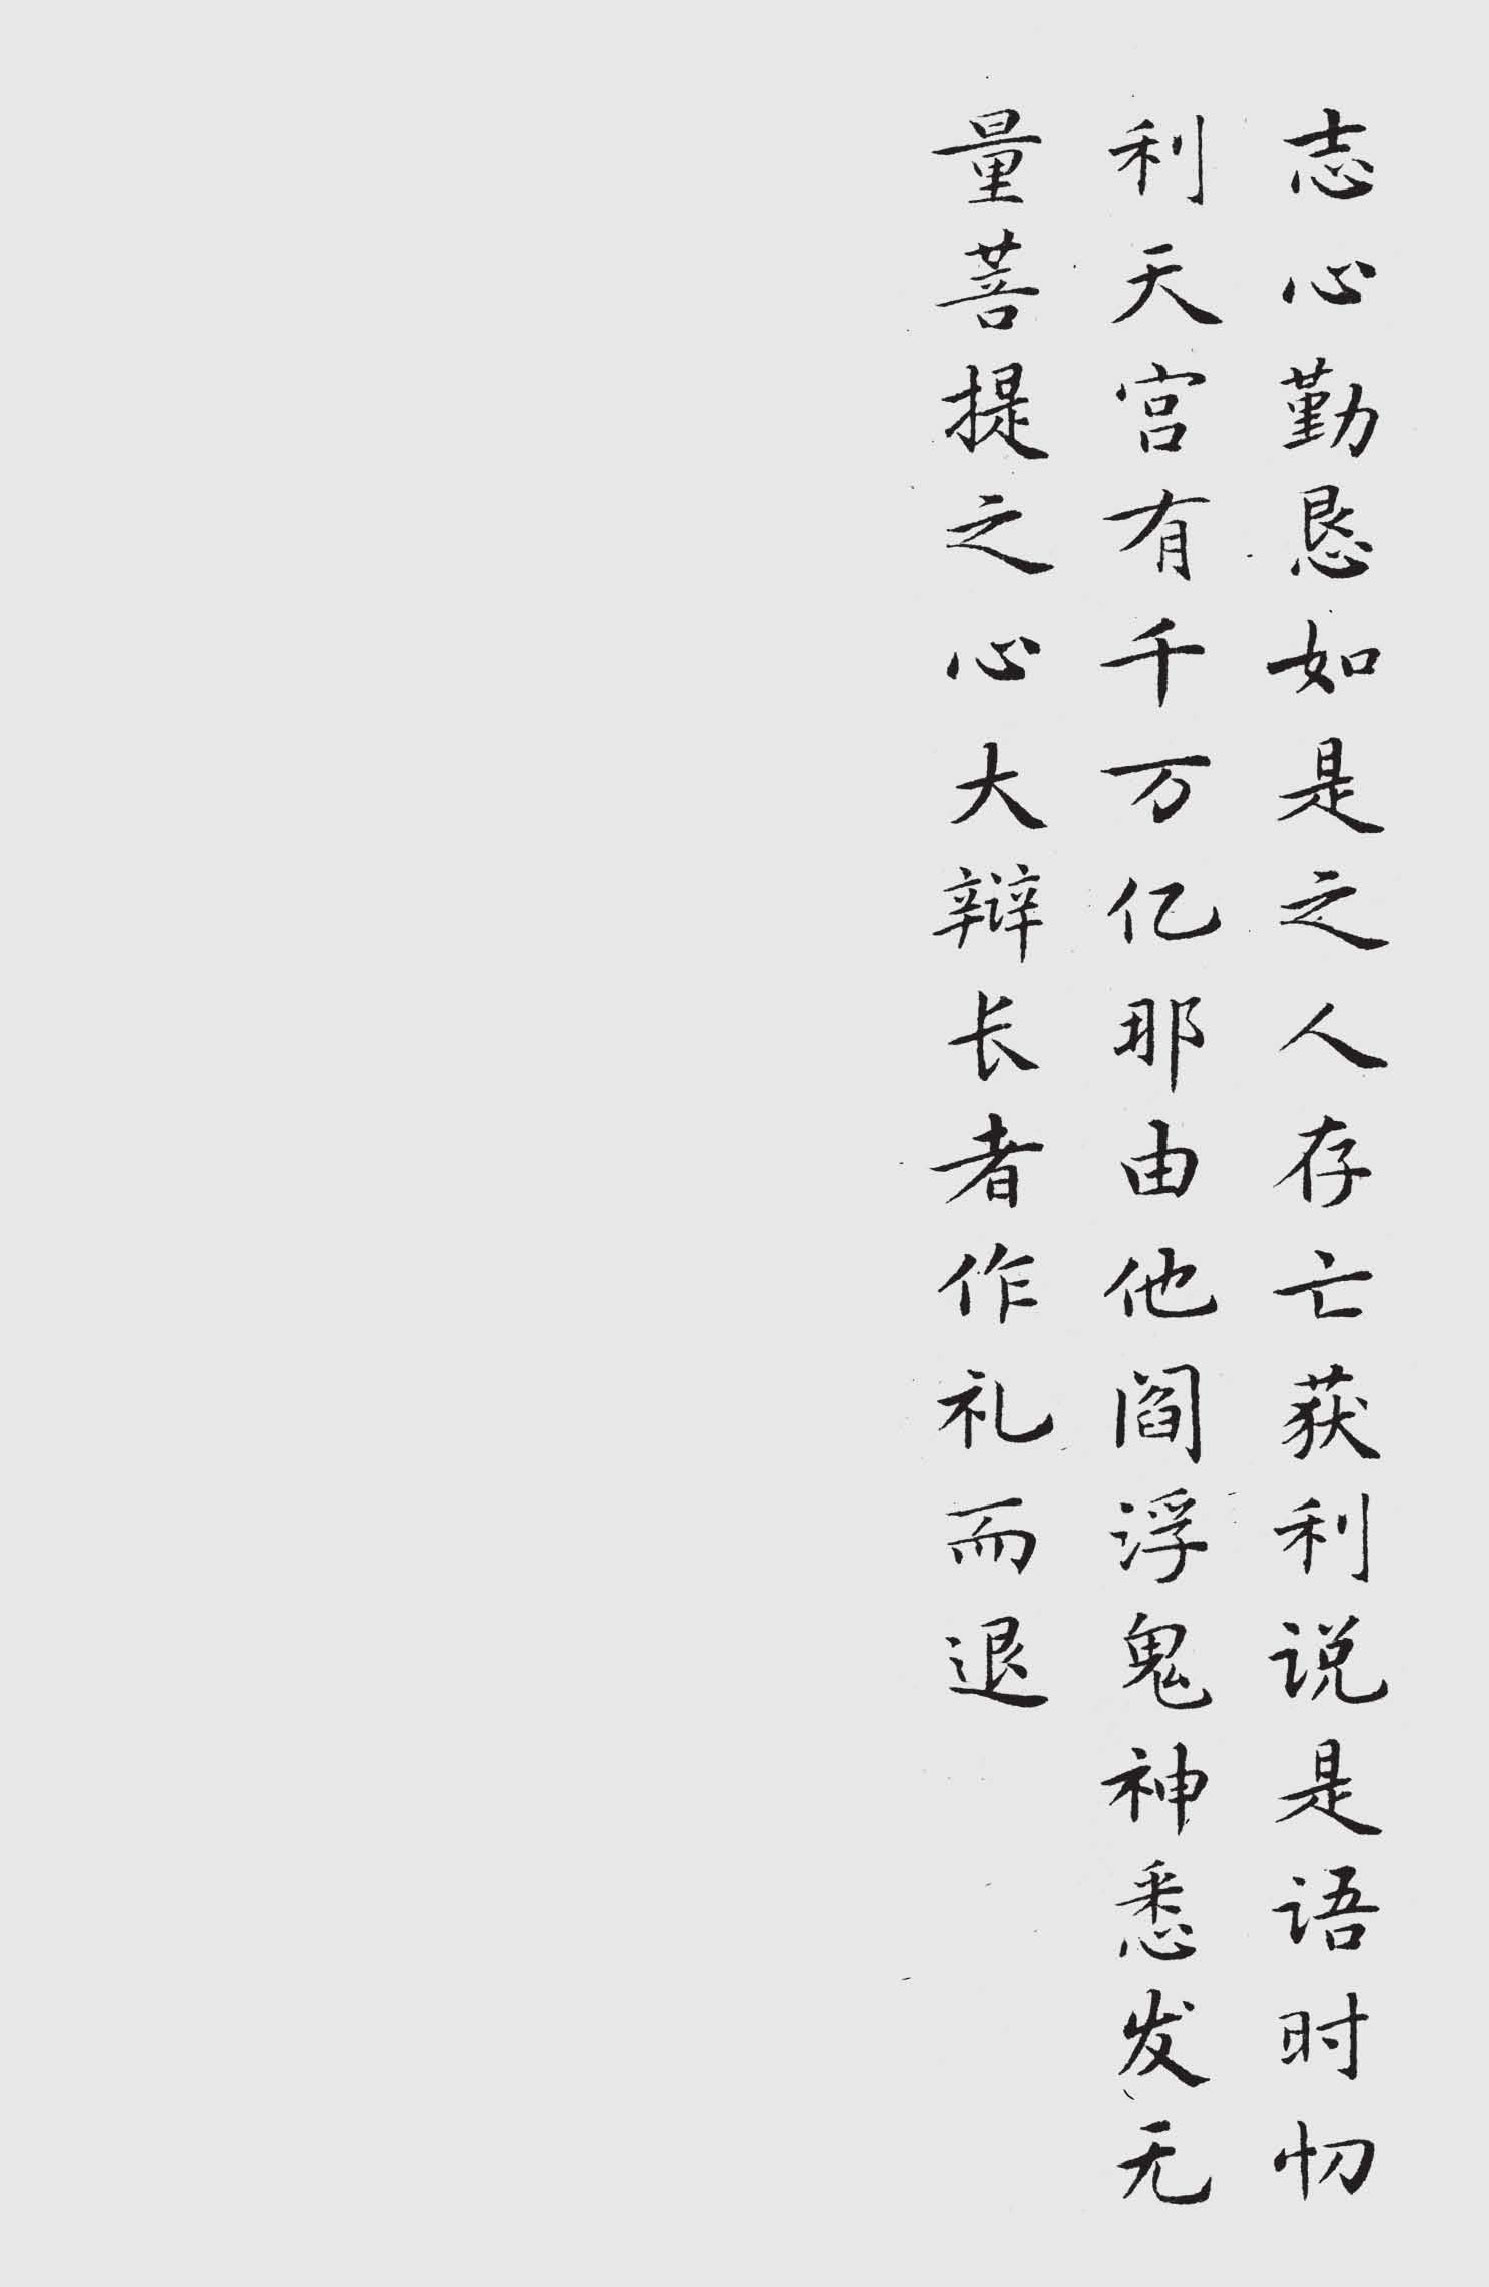 志心勤恳如是之人存亡获利说是语时忉
利天宫有千万亿那由他阎浮鬼神悉发无
量菩提之心大辩长者作礼而退